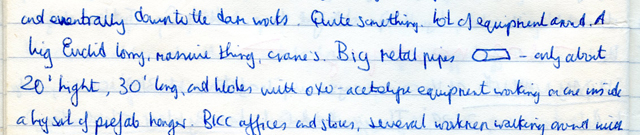 and eventually down to the dam works. Quite something. Lot of equipment around. A
big Euclid lorry, massive thing, cranes. Big metal pipes – only about
20' hight, 30' long, and blokes with oxo-acetelyne equipment working on one inside
a big sort of prefab hanger. BICC offices and stores, several workmen walking around with